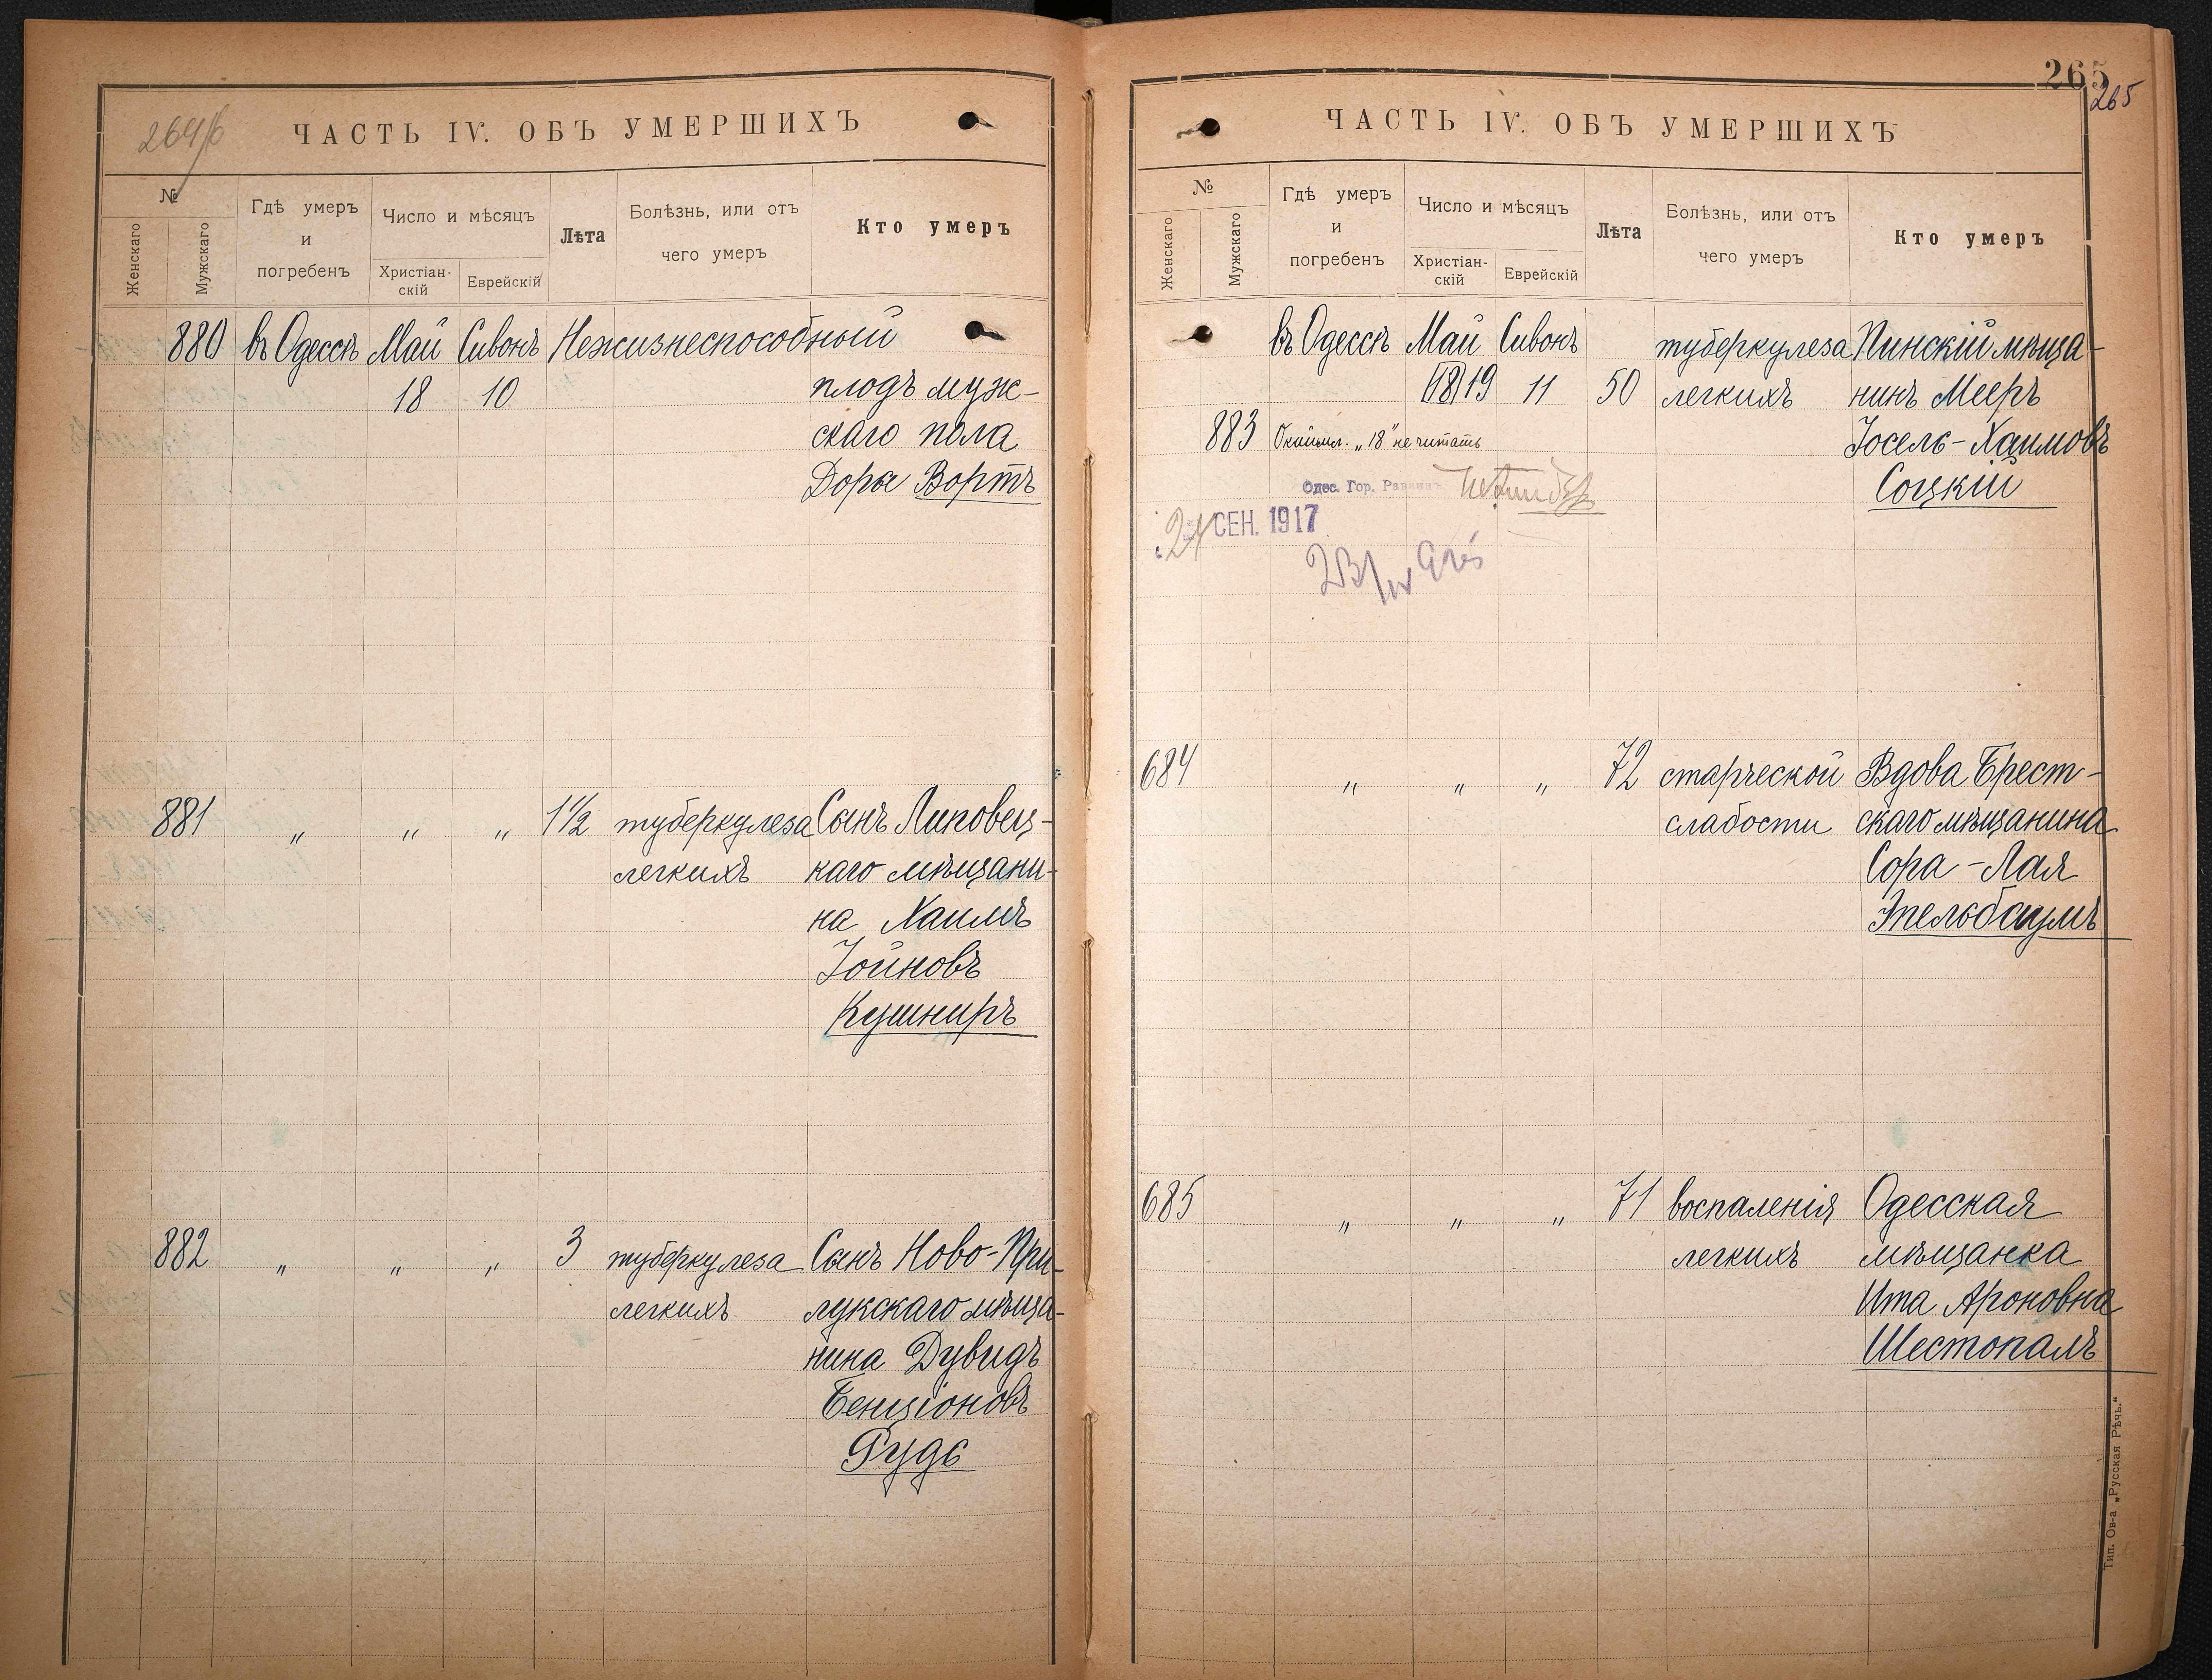 264/б
ЧАСТЬ IV. ОБЪ УМЕРШИХЪ
№
Женскаго
Мужскаго
Гдѣ умеръ
и
погребенъ
Число и мѣсяцъ
Христіан-
скій
Еврейскій
Лѣта
Болѣзнь, или отъ
чего умеръ
Кто умеръ
880 въ Одессѣ Май Сивонъ Нежизнеспособный
18 10 плодъ муж-
скаго пола
Доры Вортъ
881 " " " 1½ туберкулеза Сынъ Липовец-
легкихъ каго мѣщани-
на Хаимъ
Іойновъ
Кушниръ
882 " " " 3 туберкулеза Сынъ Ново-При-
легкихъ лукскаго мѣща-
нина Дувидъ
Бенціоновъ
Рудь
265
265
ЧАСТЬ IV. ОБЪ УМЕРШИХЪ
№
Женскаго
Мужскаго
Гдѣ умеръ
и
погребенъ
Число и мѣсяцъ
Христіан-
скій
Еврейскій
Лѣта
Болѣзнь, или отъ
чего умеръ
Кто умеръ
въ Одессѣ Май Сивонъ туберкулеза Пинскій мѣща-
18 19 11 50 легкихъ нинъ Мееръ
883 Окаймл. „18" не читать Іосель-Хаимовъ
Одес. Гор. Соцкій
24 СЕН. 1917
684 " " " 72 старческой Вдова Брест-
слабости скаго мѣщанина
Сора-Лая
Эпельбаумъ
685 " " " 71 воспаленія Одесская
легкихъ мѣщанка
Ита Ароновна
Шестопалъ
Тип. Ов-а „Русская Рѣчь."